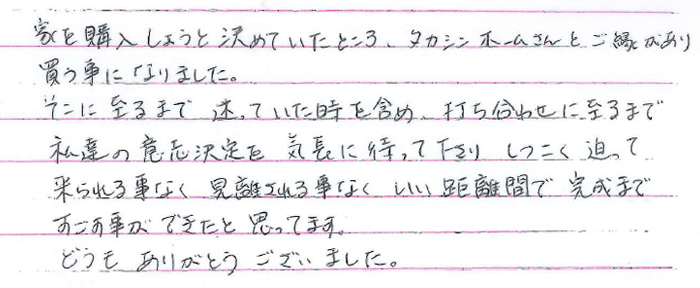 家を購入しようと決めていたところ、タカシンホームさんとご縁があり
買う事になりました。
そこに至るまで 迷っていた時を含め、打ち合わせに至るまで
私達の意志決定を 気長に待って下さり しつこく迫って
来られる事なく 見離される事なく いい距離間で 完成まで
すごす事が できたと思ってます。
どうも ありがとう ございました。